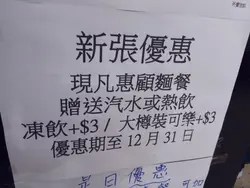 新張優惠
現凡惠顧麵餐
贈送汽水或熱飲
凍飲+$3 / 大樽裝可樂+$3
優惠期至 12 月 31 日
是日優惠